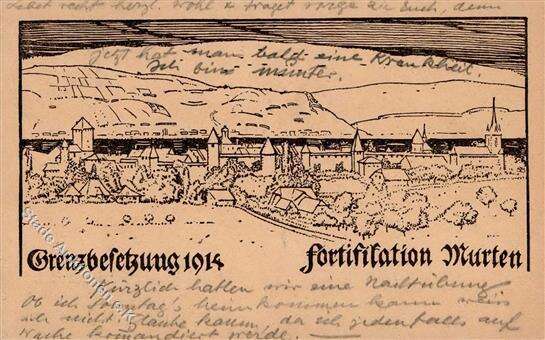 Lebet recht herzl. wohl u traget sorge zu Euch, denn
jetzt hat man bald eine Krankheit.
Ich bins munter.
Grenzbesetzung 1914 Fortifikation Murten
Kürzlich hatten wir eine Nachtübung
Ob ich Freitag's heimkommen kann weiss
ich nicht glaube kaum, da ich jedenfalls auf
Wache komandiert werde.